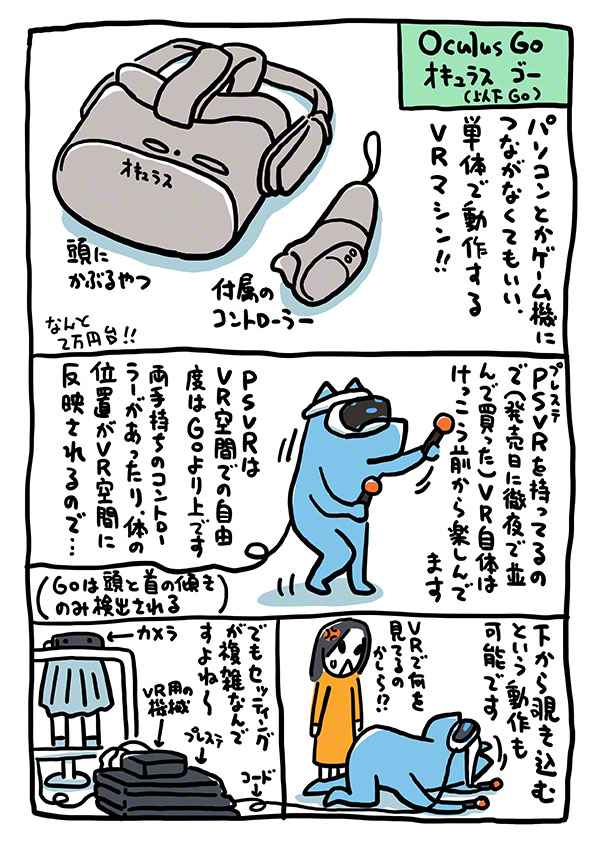 Oculus Go
オキュラス ゴー
(以下Go)
パソコンとかゲーム機に
つながなくてもいい、
単体で動作する
VRマシン!!
オキュラス
頭に
かぶるやつ
付属の
コントローラー
なんと
2万円台!!
プレステ
PSVRを持ってるの
で(発売日に徹夜で並
んで買った)VR自体は
けっこう前から楽しんで
ます
PSVRは
VR空間での自由
度はGoより上です
両手持ちのコントロー
ラーがあったり、体の
位置がVR空間に
反映されるので…
(Goは頭と首の傾き
のみ検出される)
下から覗き込む
という動作も
可能です
VRで何を
見てるの
かしら!?
でもセッティング
が複雑なんで
すよね〜
カメラ
VR用の
機械
プレステ
コード